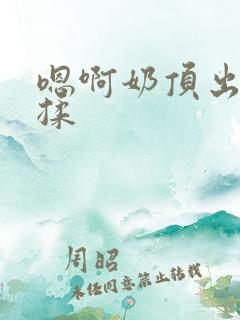 嗯啊奶頂出
揉
周昭
未经同意禁止转载